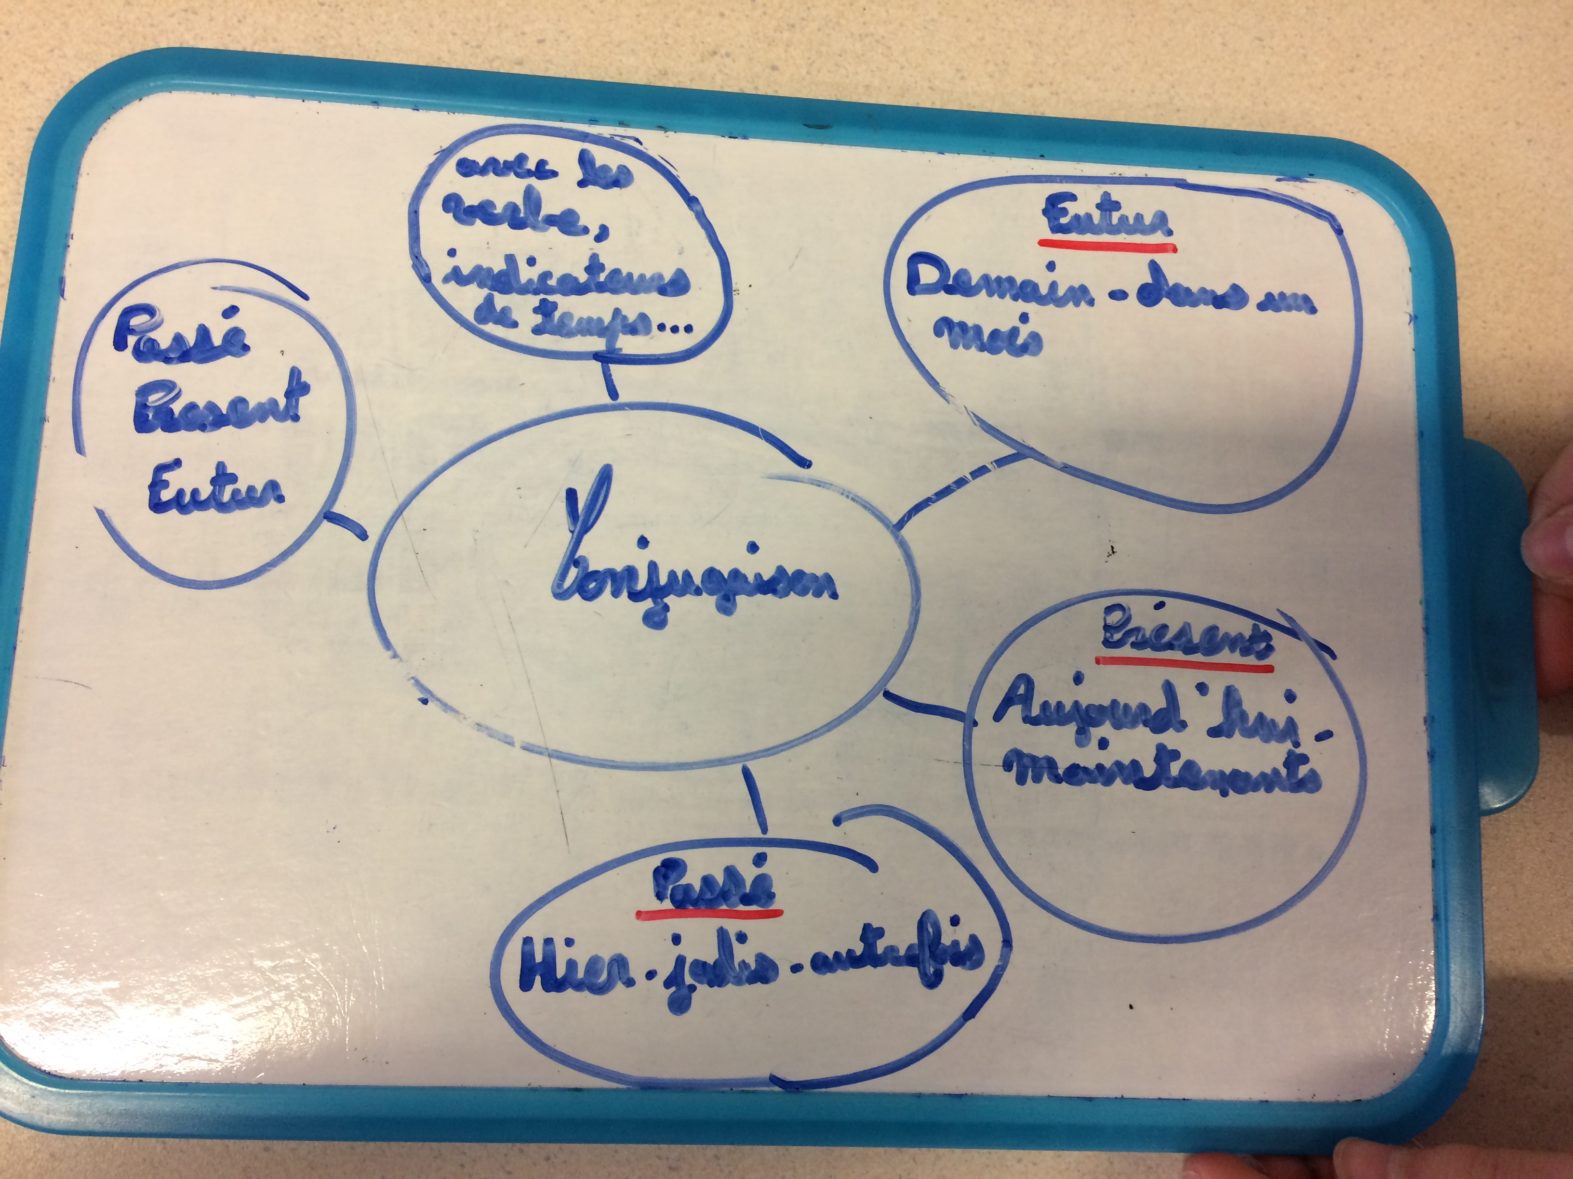 avec les
verbe,
indicateurs
de temps...
Futur
Demain - dans un
mois
Passé
Présent
Futur
Conjugaison
Présent
Aujourd'hui -
maintenants
Passé
Hier - jadis - autrefois